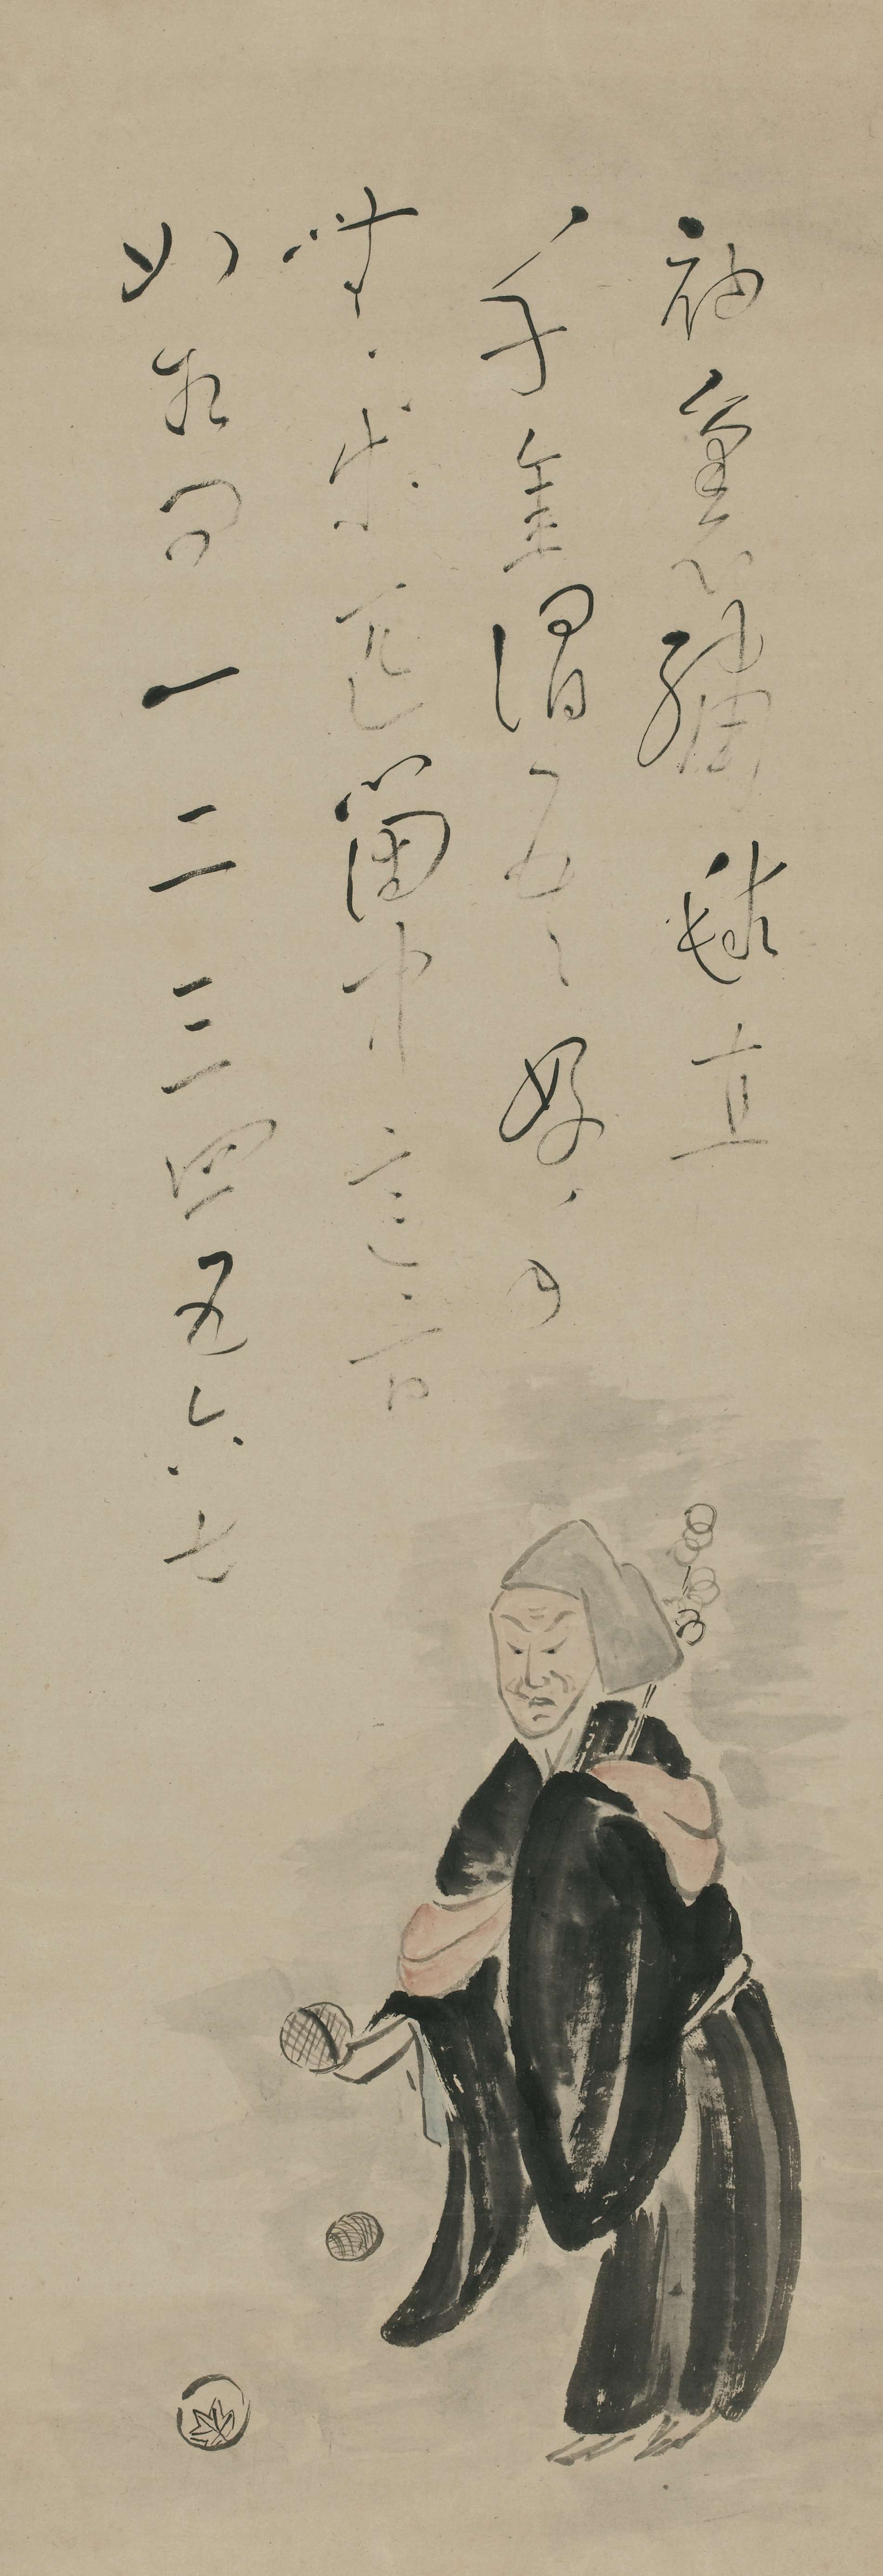 袖裏繡毬直
千金謂吾好手
無等匹箇中意旨
如相問一二三四五六七